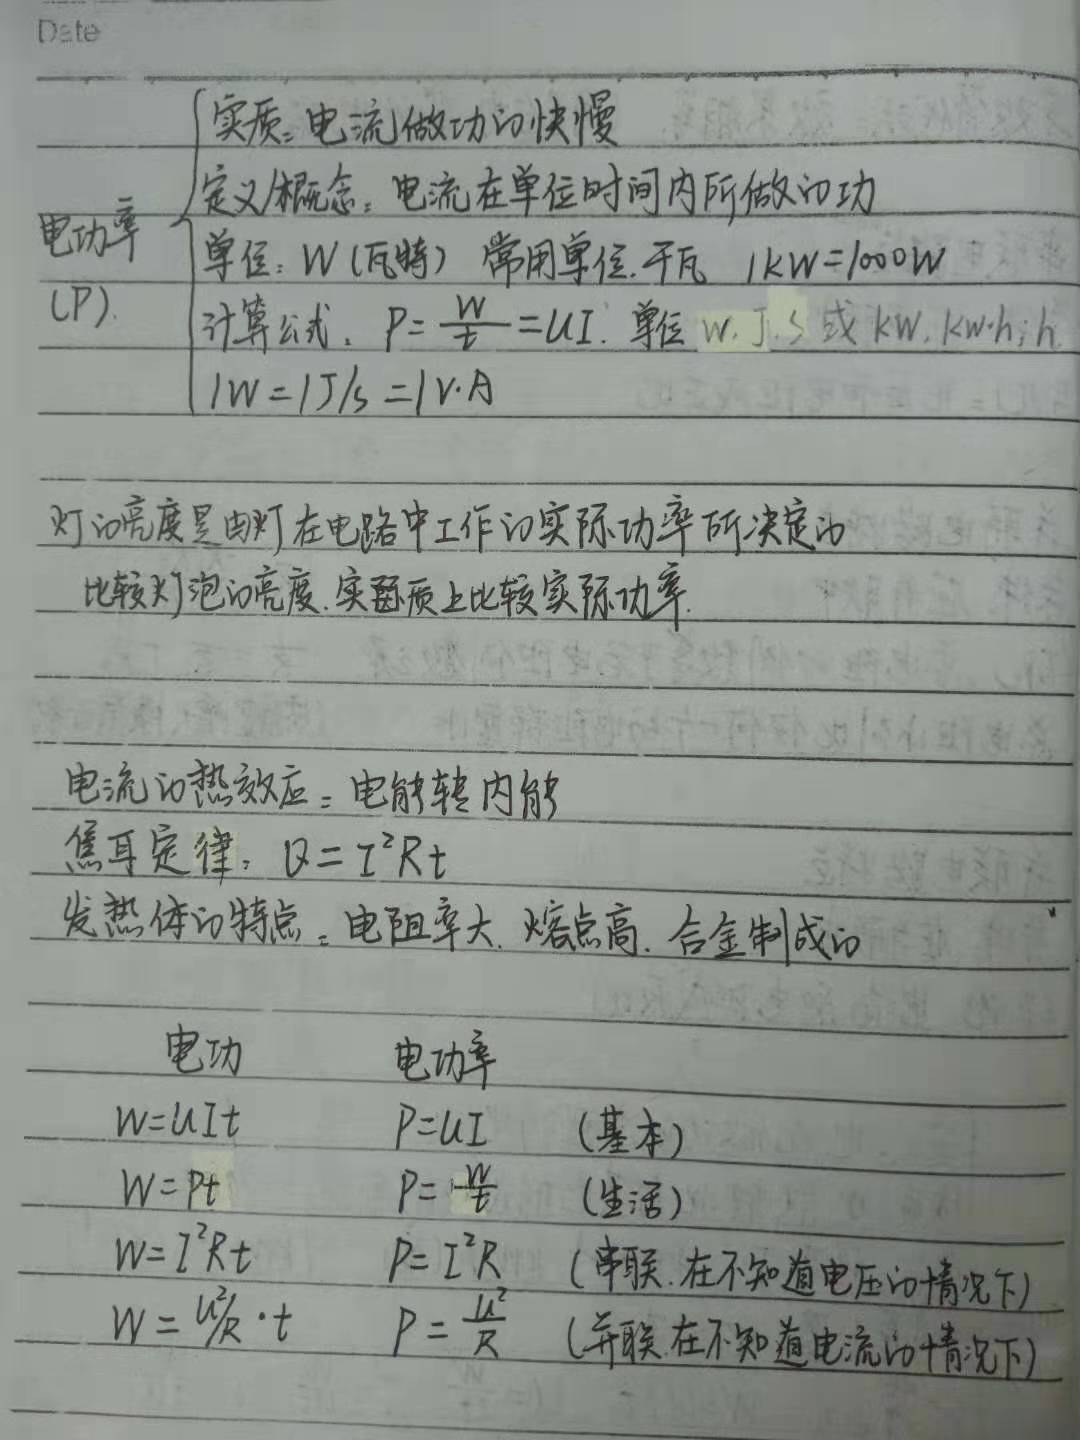 Date
实质：电流做功的快慢
定义/概念：电流在单位时间内所做的功
电功率
(P).
单位：W(瓦特) 常用单位.千瓦 1kW=1000W
计算公式. P=W/t=UI. 单位 W.J.S 或 kW.kW·h;h.
1W=1J/s=1V·A
灯的亮度是由灯在电路中工作的实际功率所决定的
比较灯泡的亮度.实质上比较实际功率.
电流的热效应：电能转内能
焦耳定律：Q=I²Rt
发热体的特点：电阻率大.熔点高.合金制成的
电功 电功率
W=UIt P=UI (基本)
W=Pt P=W/t (生活)
W=I²Rt P=I²R (串联.在不知道电压的情况下)
W=U²/R·t P=U²/R (并联.在不知道电流的情况下)